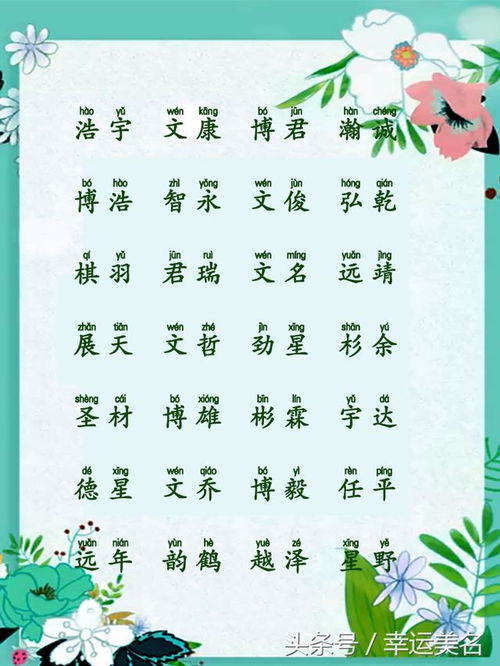 hào yǔ wén kāng bó jūn hàn chéng
浩宇 文康 博君 瀚诚
bó hào zhì yǒng wén jùn hóng qián
博浩 智永 文俊 弘乾
qí yǔ jūn ruì wén míng yuǎn jìng
棋羽 君瑞 文名 远靖
zhǎn tiān wén zhé jìn xīng shān yú
展天 文哲 劲星 杉余
shèng cái bó xióng bīn lín yǔ dá
圣材 博雄 彬霖 宇达
dé xīng wén qiáo bó yì rèn píng
德星 文乔 博毅 任平
yuǎn nián yùn hè yuè zé xīng yě
远年 韵鹤 越泽 星野
头条号 / 幸运美名